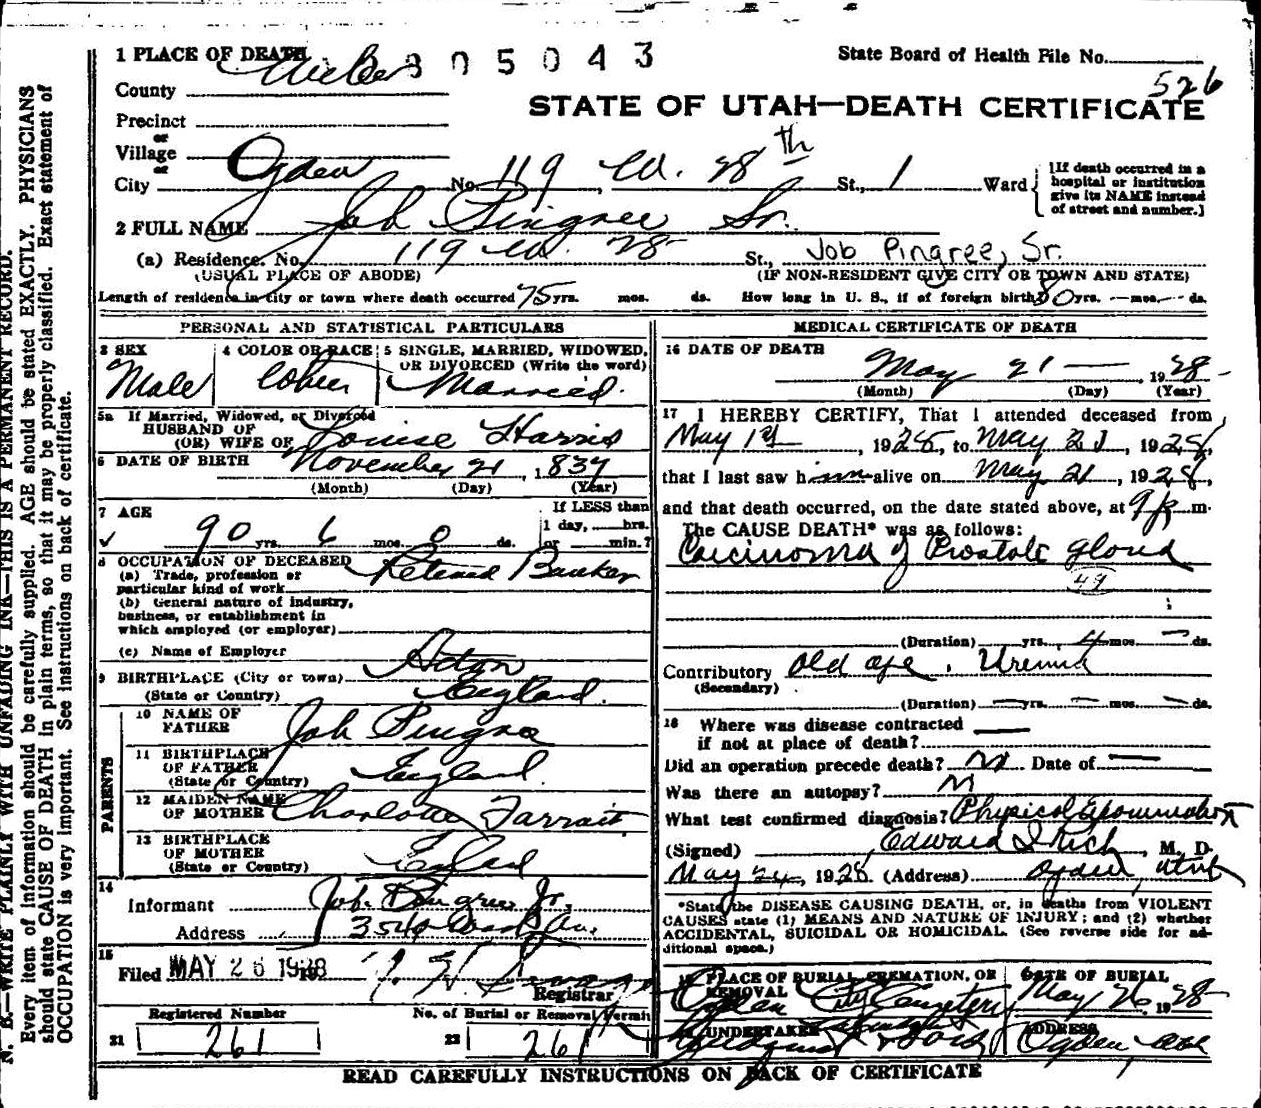 1 PLACE OF DEATH 305043 State Board of Health File No.
County Weber 526
STATE OF UTAH—DEATH CERTIFICATE
Precinct
or
Village
or
City Ogden No. 119 W. 28th St., 1 Ward
[If death occurred in a
hospital or institution
give its NAME instead
of street and number.]
2 FULL NAME Job Pingree Sr.
(a) Residence. No. 119 W. 28 St., Job Pingree, Sr.
(USUAL PLACE OF ABODE) (IF NON-RESIDENT GIVE CITY OR TOWN AND STATE)
Length of residence in city or town where death occurred 75 yrs. mos. ds. How long in U. S., if of foreign birth? 80 yrs. — mos. — ds.
PERSONAL AND STATISTICAL PARTICULARS
3 SEX
Male
4 COLOR OR RACE
White
5 SINGLE, MARRIED, WIDOWED,
OR DIVORCED (Write the word)
Married.
5a If Married, Widowed, or Divorced
HUSBAND OF
(OR) WIFE OF Louise Harris
6 DATE OF BIRTH November 21, 1837
(Month) (Day) (Year)
7 AGE
90 yrs. 6 mos. 0 ds.
If LESS than
1 day, hrs.
or min.?
8 OCCUPATION OF DECEASED
(a) Trade, profession or
particular kind of work Retired Banker
(b) General nature of industry,
business, or establishment in
which employed (or employer)
(c) Name of Employer
9 BIRTHPLACE (City or town) Acton
(State or Country) England.
PARENTS
10 NAME OF
FATHER Job Pingree
11 BIRTHPLACE
OF FATHER
(State or Country) England.
12 MAIDEN NAME
OF MOTHER Charlotte Tarrant.
13 BIRTHPLACE
OF MOTHER
(State or Country) England
14
Informant Job Pingree Jr.
Address 3546 Wash Av.
15
Filed MAY 26 1928
Registrar
Registered Number
21 261
No. of Burial or Removal Permit
22 261
MEDICAL CERTIFICATE OF DEATH
16 DATE OF DEATH
May 21 — , 1928
(Month) (Day) (Year)
17 I HEREBY CERTIFY, That I attended deceased from
May 1st, 1928, to May 21, 1928,
that I last saw him alive on May 21, 1928,
and that death occurred, on the date stated above, at 9 P m.
The CAUSE DEATH* was as follows:
Carcinoma of Prostate Gland
49
(Duration) yrs. 4 mos. — ds.
Contributory Old age, Uremia
(Secondary)
(Duration) — yrs. — mos. — ds.
18 Where was disease contracted —
if not at place of death?
Did an operation precede death? N Date of —
Was there an autopsy? N
What test confirmed diagnosis? Physical Examination
(Signed) Edward I Rich, M. D.
May 24, 1928 (Address) Ogden, Utah
*State the DISEASE CAUSING DEATH, or, in deaths from VIOLENT
CAUSES state (1) MEANS AND NATURE OF INJURY; and (2) whether
ACCIDENTAL, SUICIDAL OR HOMICIDAL. (See reverse side for ad-
ditional space.)
PLACE OF BURIAL, CREMATION, OR
REMOVAL
Ogden City Cemetery
DATE OF BURIAL
May 26, 1928
UNDERTAKER
& Sons
ADDRESS
Ogden, Utah
READ CAREFULLY INSTRUCTIONS ON BACK OF CERTIFICATE
N. B.—WRITE PLAINLY WITH UNFADING INK—THIS IS A PERMANENT RECORD.
Every item of information should be carefully supplied. AGE should be stated EXACTLY. PHYSICIANS
should state CAUSE OF DEATH in plain terms, so that it may be properly classified. Exact statement of
OCCUPATION is very important. See instructions on back of certificate.